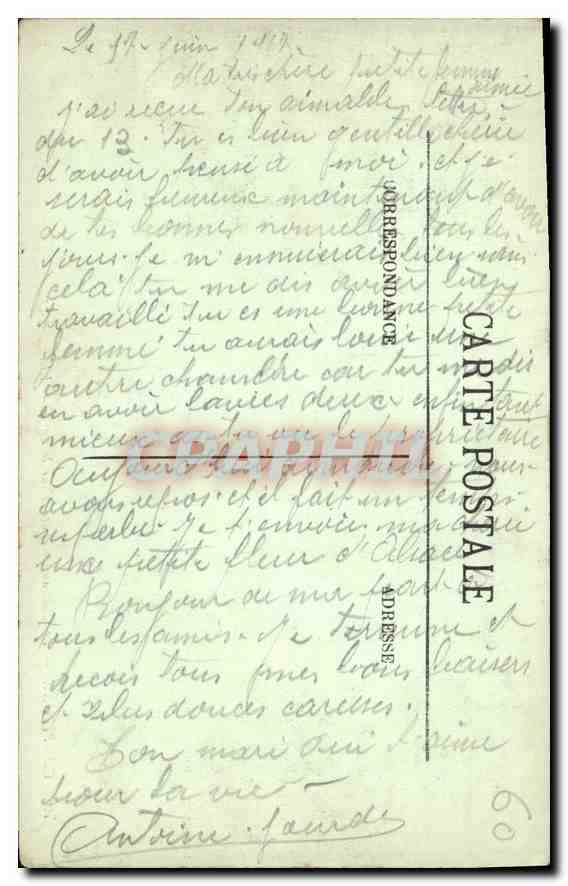 Le 17 juin 1917
Ma bien chère petite femme
aimée
J'ai reçue ton aimable lettre
du 13. Tu es bien gentille chérie
d'avoir pensé à moi. et je
serais heureux maintenant d'avoir
de tes bonnes nouvelles tous les
jours. Je m'ennuierais bien sans
cela. tu me dis avoir bien
travaillé tu es une bonne petite
femme tu aurais loué une
autre chambre car tu me dis
en avoir lavées deux enfin tant
mieux as tu vu le propriétaire
Aujourd'hui dimanche nous
avons repos. et il fait un temps
superbe. Je t'envoie ma
une petite fleur d'Alsace
Bonjour de ma part à
tous les amis. Je termine et
reçois tous mes bons baisers
et plus douces caresses.
Ton mari qui t'aime
pour la vie
Antoine
CARTE POSTALE
CORRESPONDANCE
ADRESSE
60
CPAPHIL